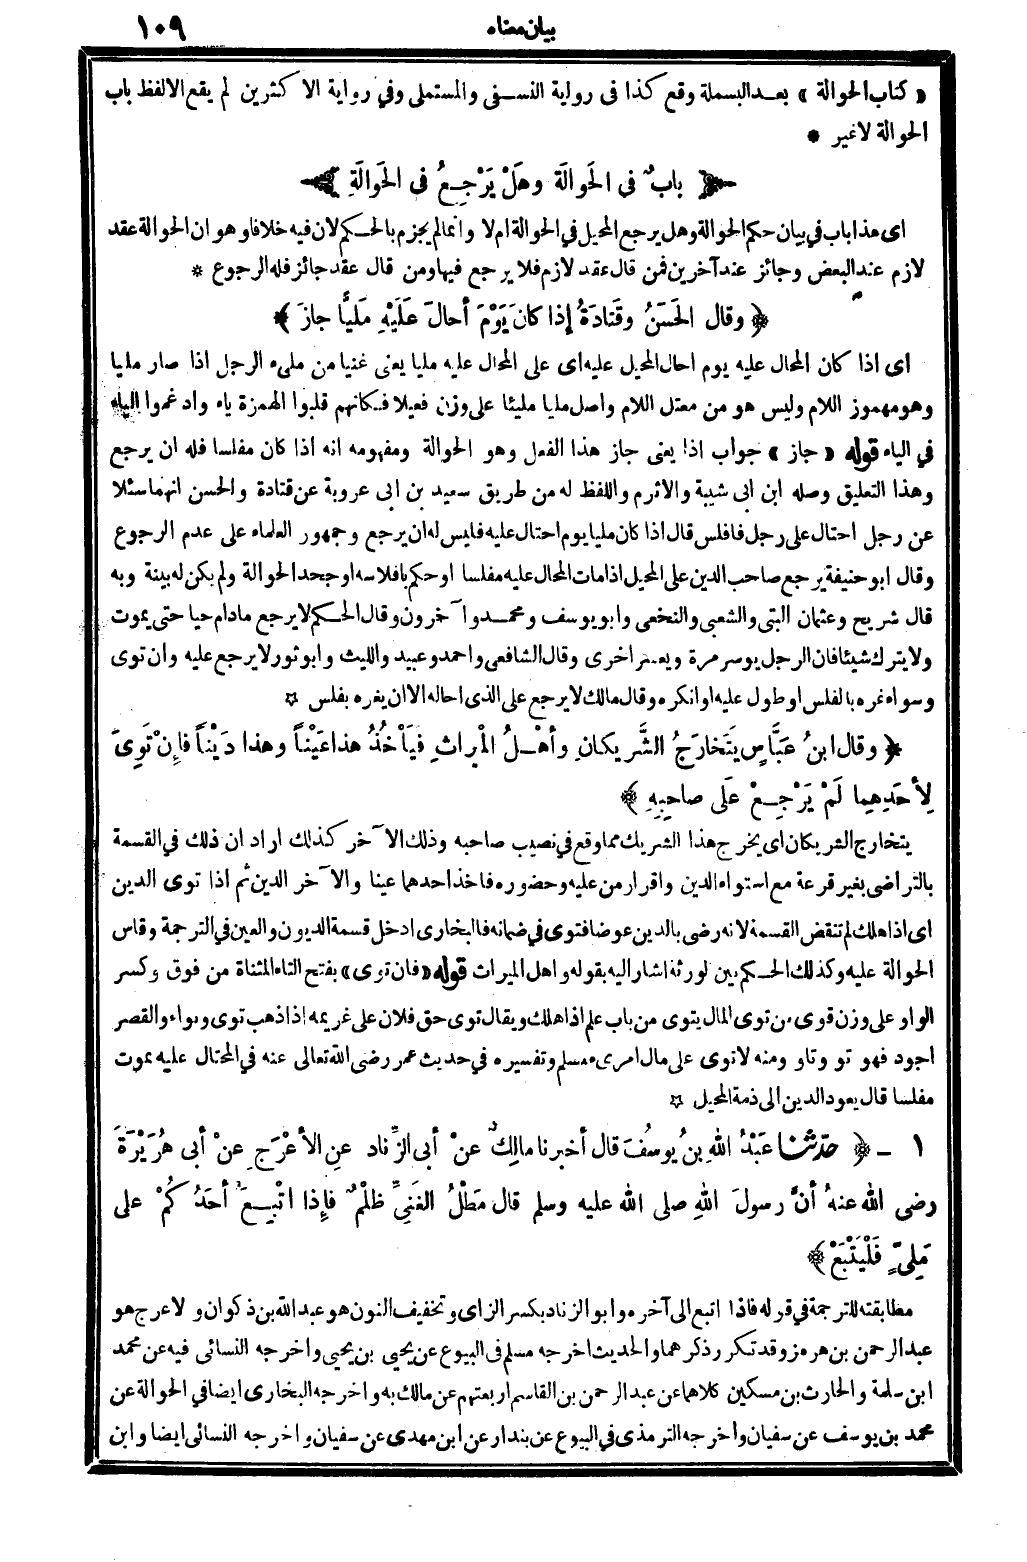 بيان معناه ١٠٩
« كتاب الحوالة » بعد البسملة وقع كذا فى رواية النسفى والمستملى وفي رواية الا كثرين لم يقع الالفظ باب
الحوالة لاغير *
﴿ بابٌ فى الحَوالَة وهَلْ يَرْجِعُ فى الحَوالَةِ ﴾
اى هذا باب في بيان حكم الحوالة وهل يرجع المحيل في الحوالة ام لا وانما لم يجزم بالحكم لان فيه خلافا وهو ان الحوالة عقد
لازم عند البعض وجائز عند آخرين فمن قال عقد لازم فلا يرجع فيها ومن قال عقد جائز فله الرجوع *
﴿ وقال الحَسَنُ وقَتَادَةُ إذا كانَ يَوْمَ أحالَ عَلَيْهِ مَلِيًّا جازَ ﴾
اى اذا كان المحال عليه يوم احال المحيل عليه اى على المحال عليه مليا يعنى غنيا من ملىء الرجل اذا صار مليا
وهو مهموز اللام وليس هو من معتل اللام واصل مليا مليئا على وزن فعيلا فكانهم قلبوا الهمزة ياء وادغموا الياء
في الياء قوله « جاز » جواب اذا يعنى جاز هذا الفعل وهو الحوالة ومفهومه انه اذا كان مفلسا فله ان يرجع
وهذا التعليق وصله ابن ابى شيبة والاثرم واللفظ له من طريق سعيد بن ابى عروبة عن قتادة والحسن انهما سئلا
عن رجل احتال على رجل فافلس قال اذا كان مليا يوم احتال عليه فليس له ان يرجع وجمهور العلماء على عدم الرجوع
وقال ابو حنيفة يرجع صاحب الدين على المحيل اذا مات المحال عليه مفلسا او حكم بافلاسه او جحد الحوالة ولم يكن له بينة وبه
قال شريح وعثمان البتى والشعبى والنخعى وابو يوسف ومحمد وآخرون وقال الحكم لا يرجع مادام حيا حتى يموت
ولا يترك شيئا فان الرجل يوسر مرة ويعسر اخرى وقال الشافعى واحمد وعبيد والليث وابو ثور لا يرجع عليه وان توى
وسواء غره بالفلس او طول عليه او انكره وقال مالك لا يرجع على الذى احاله الا ان يغره بفلس *
﴿ وقال ابنُ عَبَّاسٍ يَتَخارَجُ الشَّرِيكانِ وأهْلُ المِيراثِ فَيَأْخُذُ هذا عَيْنَاً وهذا دَيْنَاً فإنْ تَوِىَ
لِأحَدِهِما لَمْ يَرْجِعْ عَلَى صاحِبِهِ ﴾
يتخارج الشريكان اى يخرج هذا الشريك مما وقع في نصيب صاحبه وذلك الآخر كذلك اراد ان ذلك في القسمة
بالتراضى بغير قرعة مع استواء الدين واقرار من عليه وحضوره فاخذ احدهما عينا والآخر الدين ثم اذا توى الدين
اى اذا هلك لم تنقض القسمة لانه رضى بالدين عوضا فتوى في ضمانه فالبخارى ادخل قسمة الديون والعين في الترجمة وقاس
الحوالة عليه وكذلك الحكم بين لورثة اشار اليه بقوله واهل الميراث قوله « فان توى » بفتح التاء المثناة من فوق وكسر
الواو على وزن قوى من توى المال يتوى من باب علم اذا هلك ويقال توى حق فلان على غريمه اذا ذهب توى وتواء والقصر
اجود فهو تو وتاو ومنه لا توى على مال امرىء مسلم وتفسيره في حديث عمر رضى الله تعالى عنه في المحتال عليه يموت
مفلسا قال يعود الدين الى ذمة المحيل *
١ - ﴿ حَدَّثَنَا عَبْدُ اللهِ بنُ يوسُفَ قال أخبرنا مالِكٌ عنْ أبى الزِّناد عنِ الأعْرَجِ عنْ أبى هُرَيْرَةَ
رضى الله عنهُ أنَّ رسولَ اللهِ صلى الله عليه وسلم قال مَطْلُ الغَنِىِّ ظلْمٌ فإِذا اتْبِعَ أحَدُ كُمْ على
مَلِىٍّ فَلْيَتْبَعْ ﴾
مطابقته للترجمة في قوله فاذا اتبع الى آخره وابو الزناد بكسر الزاى وتخفيف النون هو عبد الله بن ذكوان ولاعرج هو
عبد الرحمن بن هرمز وقد تكرر ذكرهما والحديث اخرجه مسلم فى البيوع عن يحيى بن يحيى واخرجه النسائى فيه عن محمد
ابن سلمة والحارث بن مسكين كلاهما عن عبد الرحمن بن القاسم اربعتهم عن مالك به واخرجه البخارى ايضا في الحوالة عن
محمد بن يوسف عن سفيان واخرجه الترمذى في البيوع عن بندار عن ابن مهدى عن سفيان واخرجه النسائى ايضا وابن